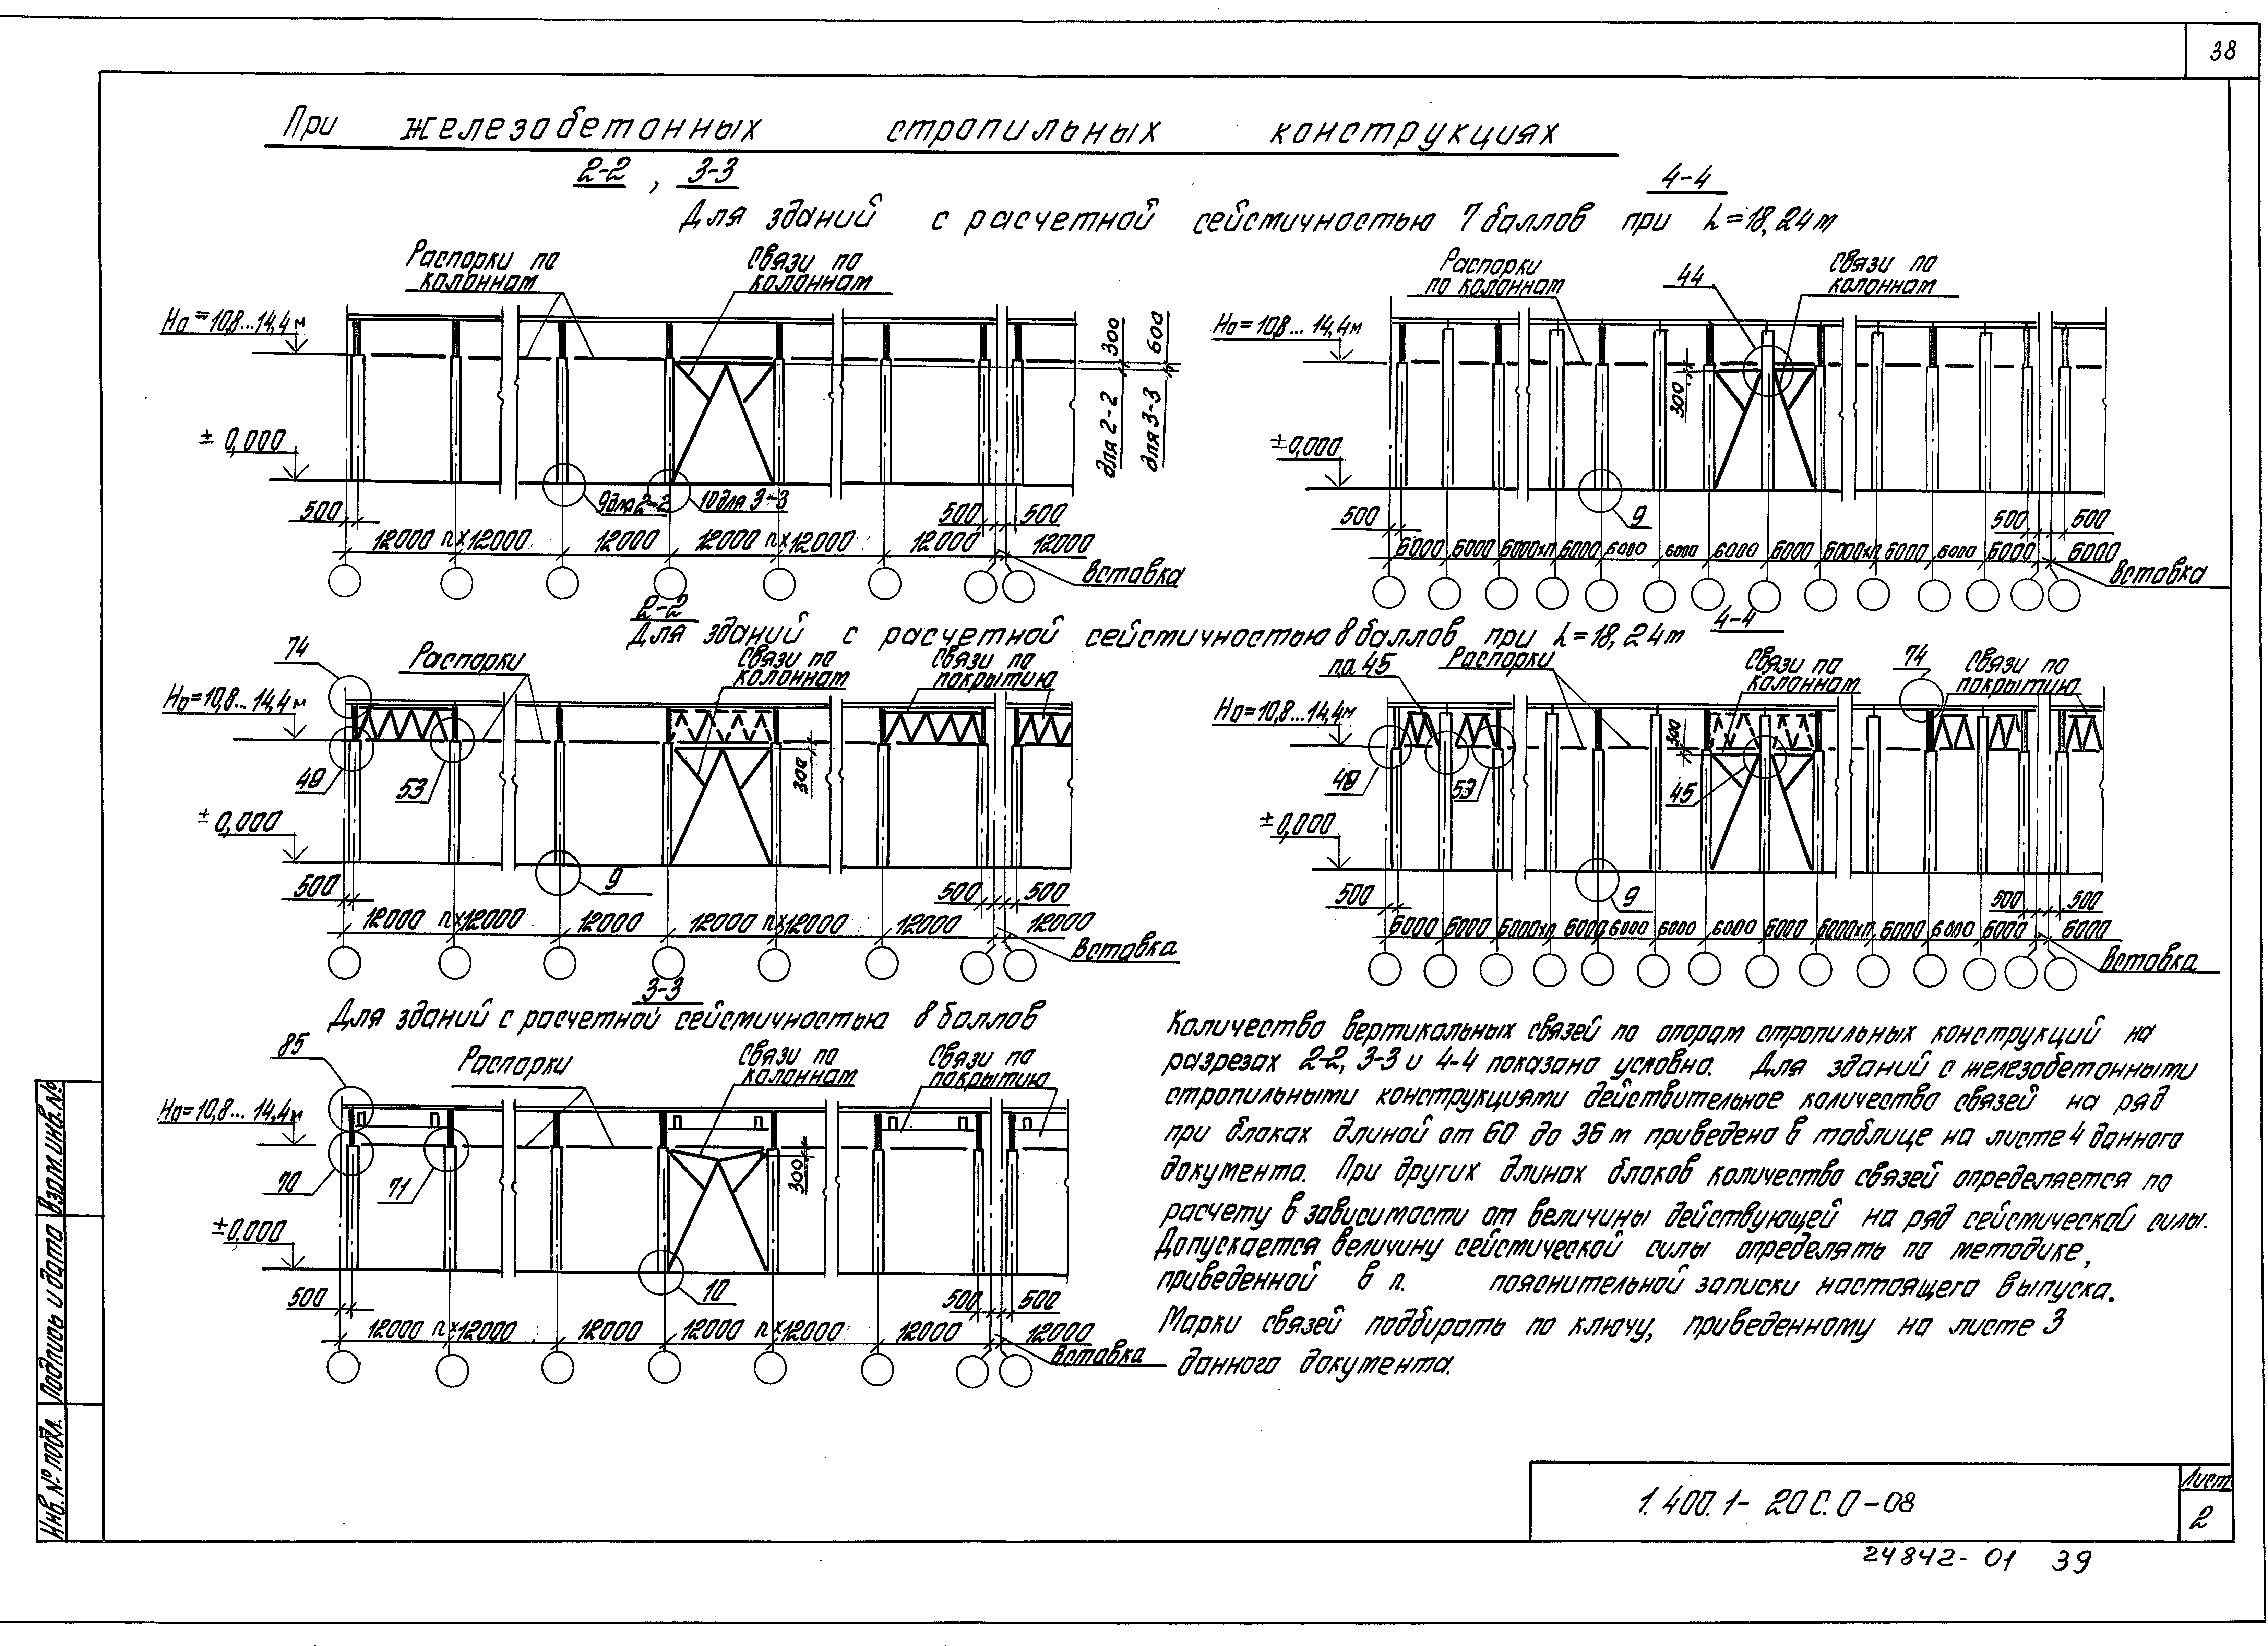 38
При железобетонных стропильных конструкциях
2-2 , 3-3
4-4
Для зданий с расчетной сейсмичностью 7 баллов при L=18, 24м
Распорки по
колоннам
Связи по
колоннам
Н₀=10,8...14,4м
300
600
для 2-2
для 3-3
± 0,000
9 для 2-2
10 для 3-3
500
500
500
12000 п×12000 12000 12000 п×12000 12000 12000
Вставка
Распорки
по колоннам
44
Связи по
колоннам
Н₀=10,8... 14,4м
300
±0,000
9
500
500
500
6000 6000 6000хп 6000 6000 6000 6000 6000 6000хп 6000 6000 6000 6000
Вставка
2-2
4-4
Для зданий с расчетной сейсмичностью 8 баллов при L=18, 24м
74
Распорки
Связи по
колоннам
Связи по
покрытию
Н₀=10,8... 14,4м
49
53
300
± 0,000
9
500
500
500
12000 п×12000 12000 12000 п×12000 12000 12000
Вставка
п.а 45
Распорки
Связи по
колоннам
74
Связи по
покрытию
Н₀=10,8...14,4м
300
49
53
45
±0,000
9
500
500
500
6000 6000 6000хп 6000 6000 6000 6000 6000 6000хп 6000 6000 6000 6000
Вставка
3-3
Для зданий с расчетной сейсмичностью 8 баллов
85
Распорки
Связи по
колоннам
Связи по
покрытию
Н₀=10,8... 14,4м
70
71
300
±0.000
10
500
500
500
12000 п×12000 12000 12000 п×12000 12000 12000
Вставка
Количество вертикальных связей по опорам стропильных конструкций на
разрезах 2-2, 3-3 и 4-4 показано условно. Для зданий с железобетонными
стропильными конструкциями действительное количество связей на ряд
при блоках длиной от 60 до 36 м приведено в таблице на листе 4 данного
документа. При других длинах блоков количество связей определяется по
расчету в зависимости от величины действующей на ряд сейсмической силы.
Допускается величину сейсмической силы определять по методике,
приведенной в п. пояснительной записки настоящего выпуска.
Марки связей подбирать по ключу, приведенному на листе 3
данного документа.
Инв. № подл. Подпись и дата Взам. инв. №
1.400.1- 20 С.0-08
Лист
2
24842-01 39